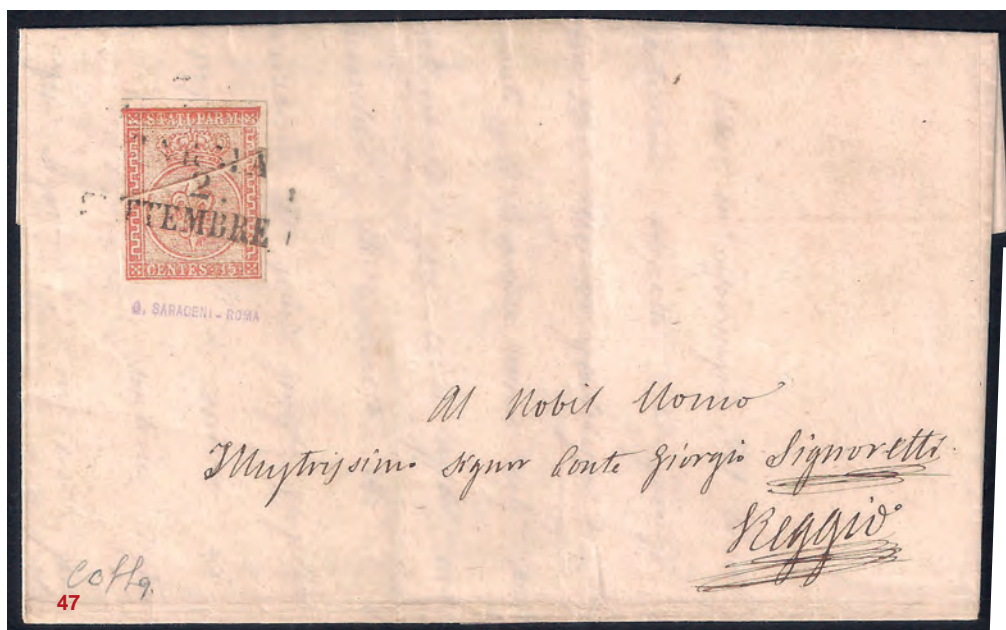 STATI PARM.
PARMA
2
TTEMBRE
CENTES. 15
G. SARACENI - ROMA
Al Nobil Uomo
Illustrissimo Signor Conte Giorgio Signoretti
Reggio
47